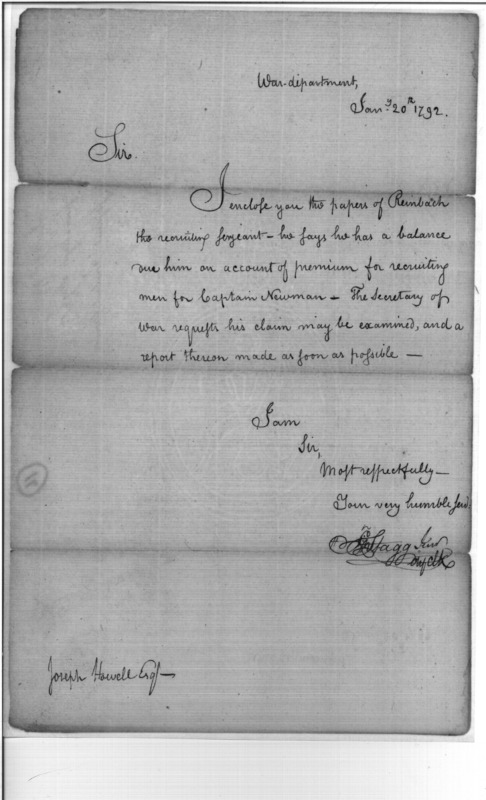 War-department,
Jany. 20th 1792.
Sir.
I enclose you the papers of Reinbach
the recruiting Sergeant – he says he has a balance
due him on account of premium for recruiting
men for Captain Newman – The Secretary of
War requests his claim may be examined, and a
report thereon made as soon as possible —
I am
Sir,
Most respectfully —
Your very humble Serv.
Stagg Junr
Joseph Howell Esqr —